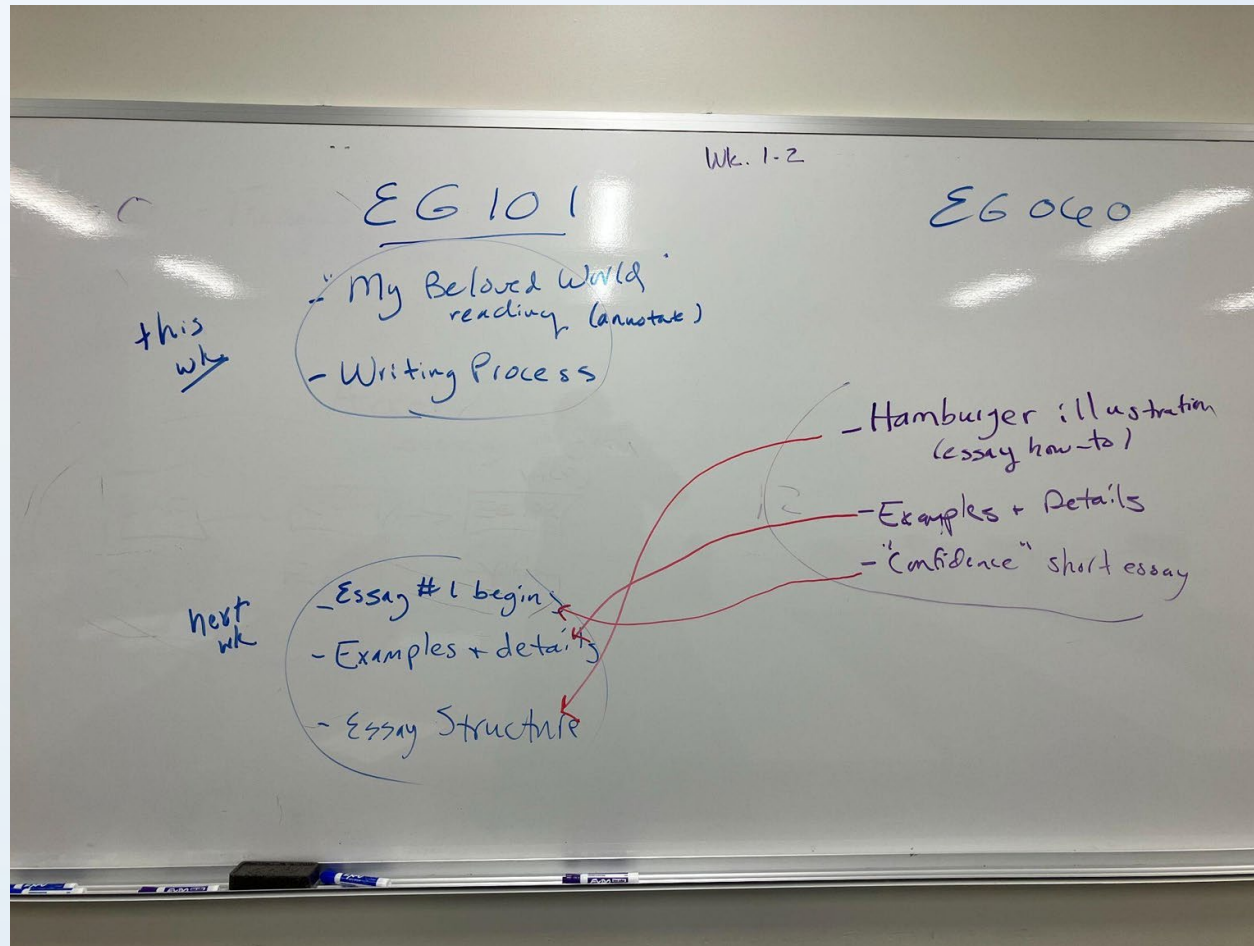 Wk. 1-2
EG 101
- "My Beloved World"
reading (annotate)
- Writing Process
this
wk
- Essay #1 begin
- Examples + details
- Essay Structure
next
wk
EG 060
- Hamburger illustration
(essay how-to)
- Examples + Details
- "Confidence" short essay